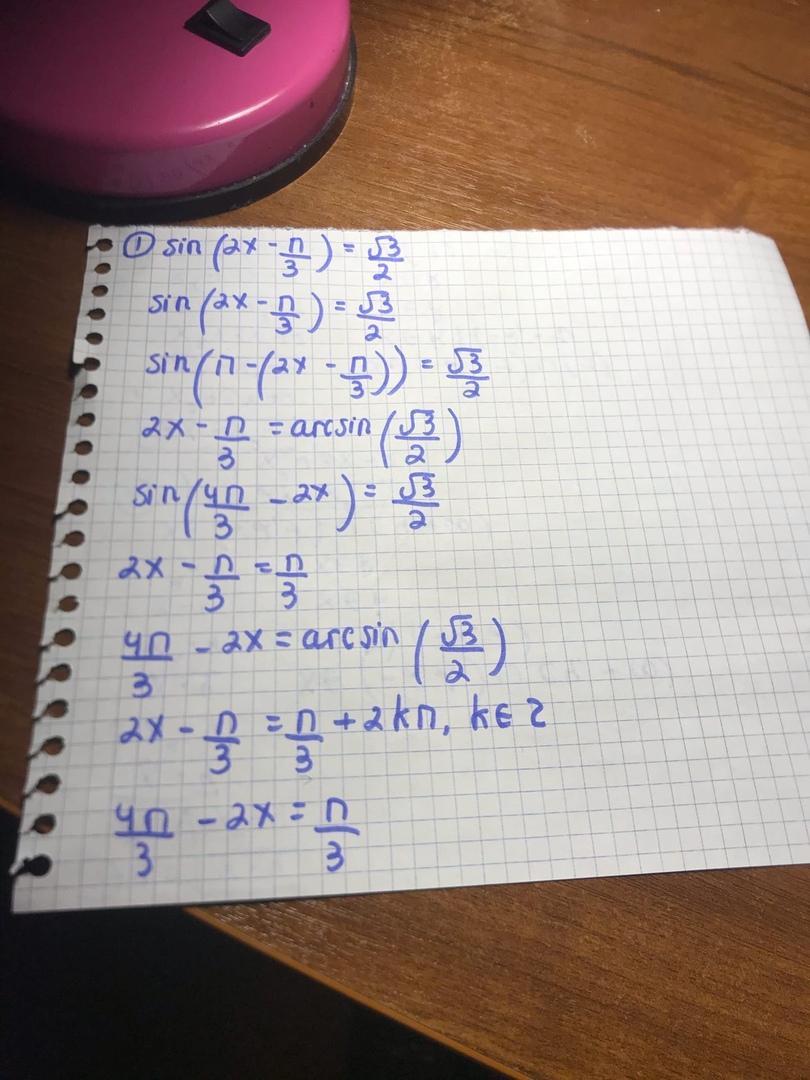 ① sin (2x - π/3) = √3/2
sin (2x - π/3) = √3/2
sin (π - (2x - π/3)) = √3/2
2x - π/3 = arcsin (√3/2)
sin (4π/3 - 2x) = √3/2
2x - π/3 = π/3
4π/3 - 2x = arcsin (√3/2)
2x - π/3 = π/3 + 2kπ, k ∈ Z
4π/3 - 2x = π/3